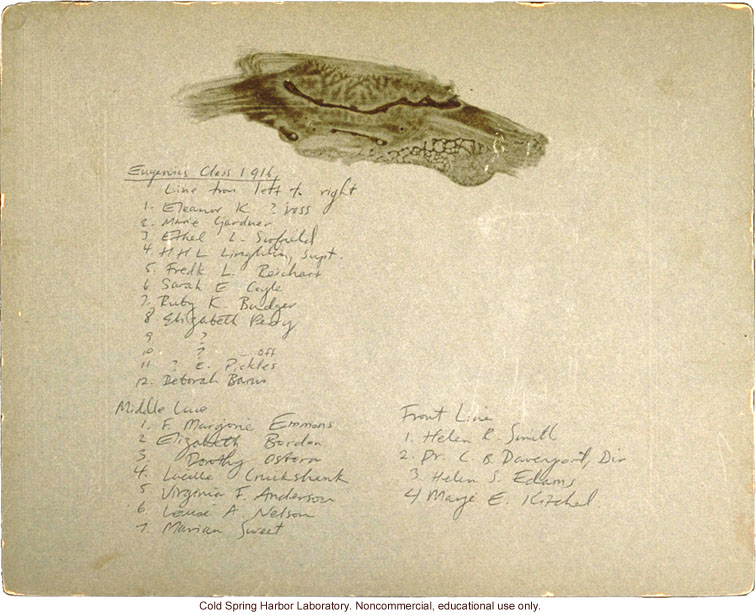 Eugenics Class 1916
Line from left to right
1. Eleanor K ?
2. Marie Gardner
3 Ethel L.
4. H H L Laughlin, Supt.
5. Fredk L. Reichart
6 Sarah E Coyle
7. Ruby K. Badger
8 Elizabeth Perry
9 ?
10 ? off
11 ? E. Pickles
12. Deborah Barus
Middle Line
1. F. Marjorie Emmons
2 Elizabeth Bordon
3 Dorothy Osborn
4. Lucille Cruikshank
5 Virginia F. Anderson
6 Louise A Nelson
7. Marian Sweet
Front Line
1. Helen R. Smill
2. Dr. C. B. Davenport, Dir
3. Helen S. Edams
4 Marge E. Kitchel
Cold Spring Harbor Laboratory. Noncommercial, educational use only.